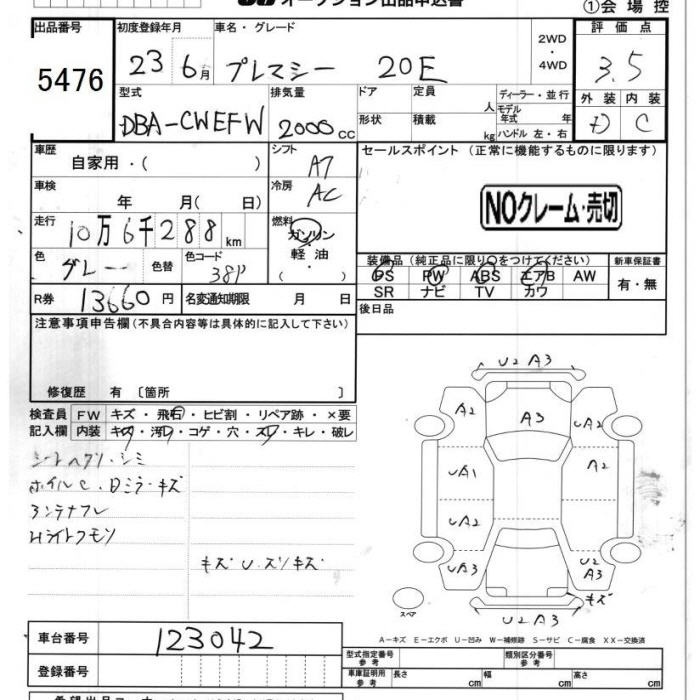 オークション出品申込書
①会場控
出品番号 5476
初度登録年月 23 6月
車名・グレード プレマシー 20E
2WD・4WD
評価点 3.5
外装 D 内装 C
型式 DBA-CWEFW
排気量 2000 cc
ドア 形状
定員 人
積載 kg
ディーラー・並行
モデル年式 年
ハンドル 左・右
車歴 自家用・( )
シフト A7
セールスポイント (正常に機能するものに限ります)
車検 年 月( 日)
冷房 AC
NOクレーム・売切
走行 10万6千288km
燃料 ガソリン・軽油・( )
色 グレー 色替
色コード 38P
装備品(純正品に限り○をつけてください)
PS PW ABS エアB AW
SR ナビ TV カワ
新車保証書 有・無
R券 13660円
名変通知期限 月 日
後日品
注意事項申告欄(不具合内容等は具体的に記入して下さい)
修復歴 有 〔箇所 〕
検査員記入欄
FW キズ・飛石・ヒビ割・リペア跡・×要
内装 キズ・汚れ・コゲ・穴・スレ・キレ・破レ
シートヘタリ・シミ
ホイルC・Dミラーキズ
アンテナフレ
Hライトクモリ
キズU・スリキズ
U2 A3
A2 A3 A2
UA1 A2
UA2
UA3 U2 A3
キズ
U2A3
スペア
A-キズ E-エクボ U-凹み W-補修跡 S-サビ C-腐食 XX-交換済
車台番号 123042
登録番号
型式指定番号 参考
類別区分番号 参考
車庫証明用 参考 長さ cm 幅 cm 高さ cm